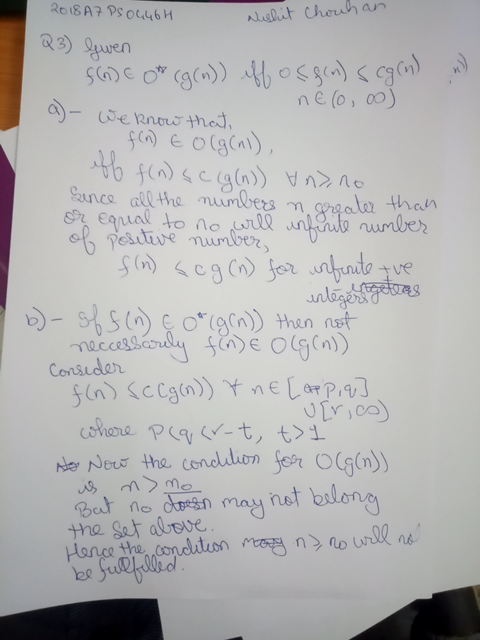 2018A7PS0446H Nishit Chouhan
Q3) Given
f(n) ∈ O*(g(n)) iff 0 ≤ f(n) ≤ cg(n)
n ∈ (0, ∞)
a) - We know that,
f(n) ∈ O(g(n)),
iff f(n) ≤ c(g(n)) ∀ n ≥ no
Since all the numbers n greater than
or equal to no will infinite number
of positive number,
f(n) ≤ cg(n) for infinite +ve
integers
b) - If f(n) ∈ O*(g(n)) then not
neccessarily f(n) ∈ O(g(n))
Consider
f(n) ≤ c(g(n)) ∀ n ∈ [p, q]
∪ [r, ∞)
where p < q < r - t, t > 1
Now the condition for O(g(n))
is n > no
But no may not belong
the set above.
Hence the condition n ≥ no will
be fullfilled.